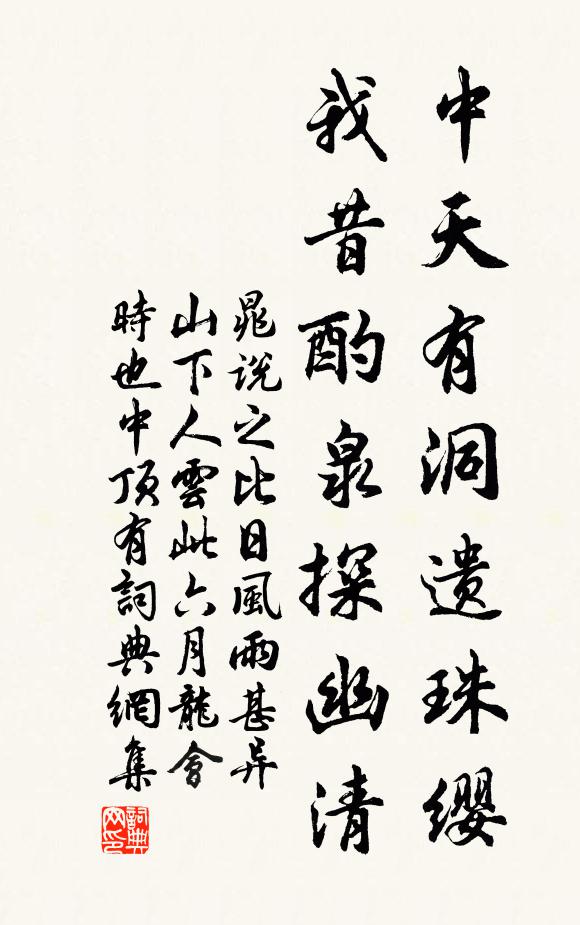 中天有洞遗珠缨
我昔酌泉探幽清
晁说之比日風雨甚异
山下人雲此六月龍會
時也中顶有詞典網集
詞典网印